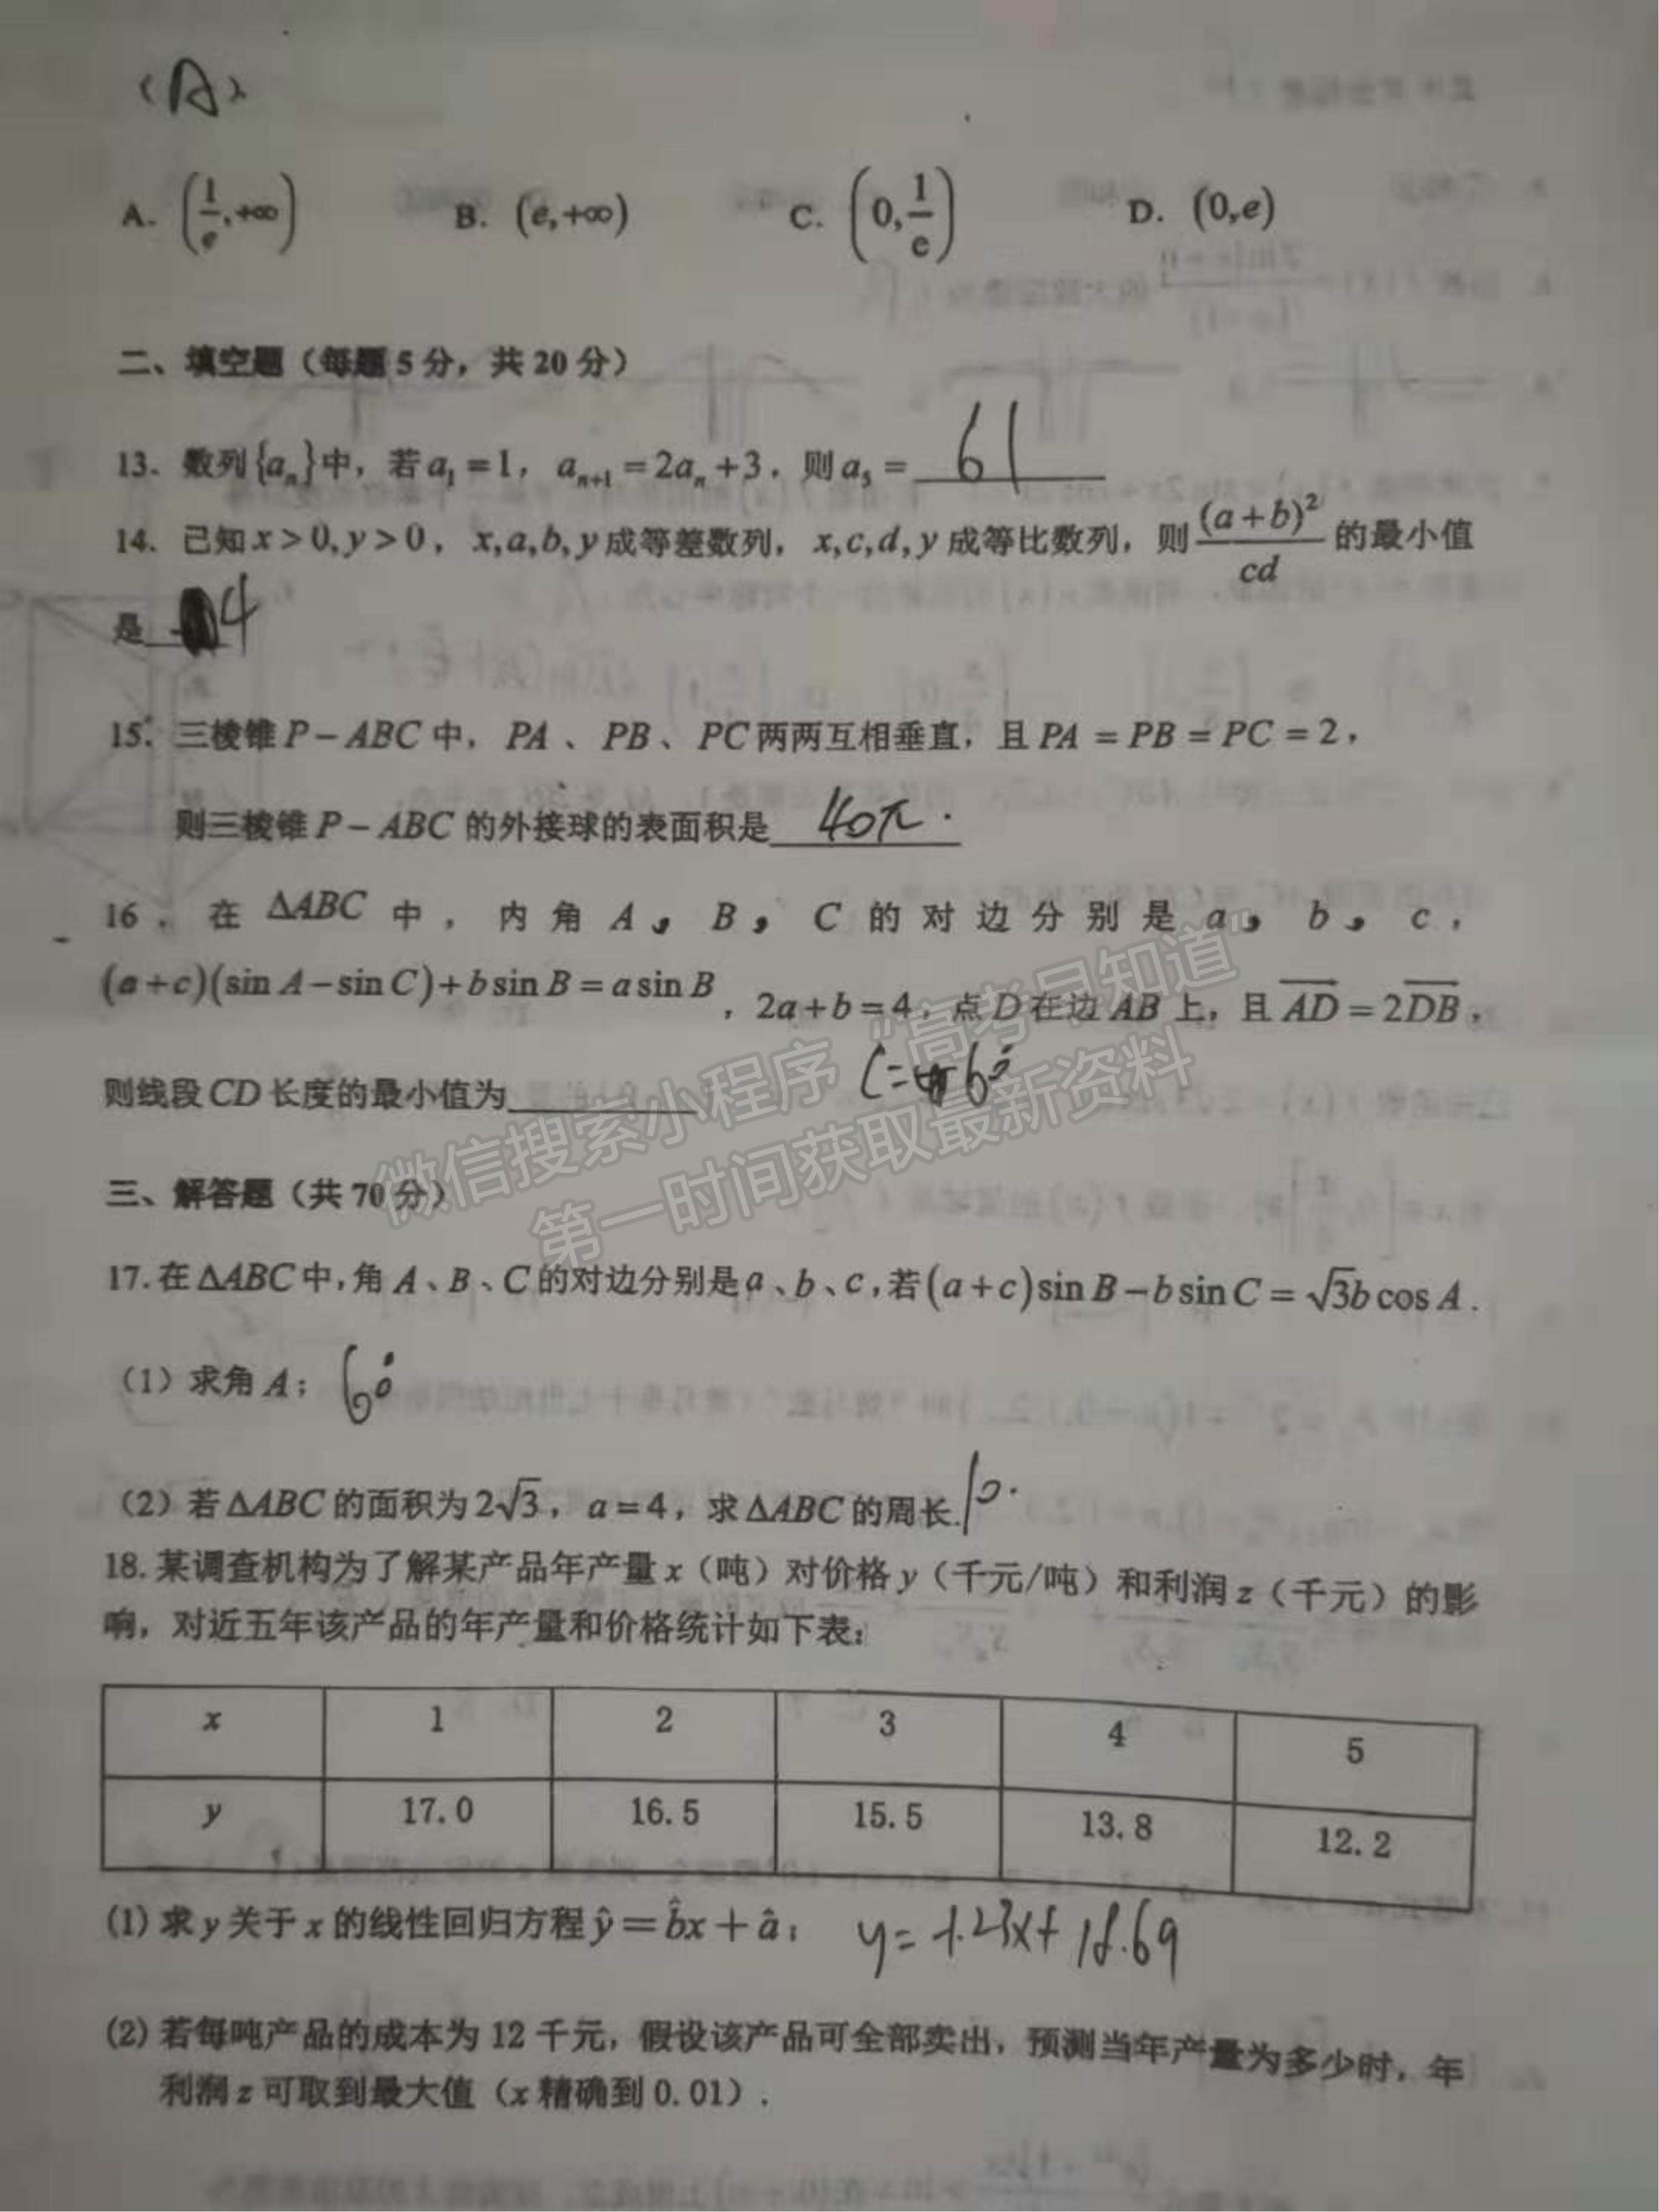 (A)
A. (1/e,+∞) B. (e,+∞) C. (0,1/e) D. (0,e)
二、填空题（每题5分，共20分）
13. 数列{aₙ}中，若a₁=1，aₙ₊₁=2aₙ+3，则a₅= 61
14. 已知x>0,y>0，x,a,b,y成等差数列，x,c,d,y成等比数列，则(a+b)²/cd的最小值
是 4
15. 三棱锥P-ABC中，PA、PB、PC两两互相垂直，且PA=PB=PC=2，
则三棱锥P-ABC的外接球的表面积是 40π.
16．在ΔABC中，内角A，B，C的对边分别是a，b，c，
(a+c)(sinA-sinC)+bsinB=asinB，2a+b=4，点D在边AB上，且AD=2DB，
则线段CD长度的最小值为____ C=60°
微信搜索小程序“高考早知道”
第一时间获取最新资料
三、解答题（共70分）
17.在ΔABC中,角A、B、C的对边分别是a、b、c,若(a+c)sinB-bsinC=√3bcosA.
（1）求角A； 60°
（2）若ΔABC的面积为2√3，a=4，求ΔABC的周长. 10.
18.某调查机构为了解某产品年产量x（吨）对价格y（千元/吨）和利润z（千元）的影
响，对近五年该产品的年产量和价格统计如下表：
x 1 2 3 4 5
y 17.0 16.5 15.5 13.8 12.2
(1)求y关于x的线性回归方程ŷ=b̂x+â； y=-1.23x+18.69
(2)若每吨产品的成本为12千元，假设该产品可全部卖出，预测当年产量为多少时，年
利润z可取到最大值（x精确到0.01）.